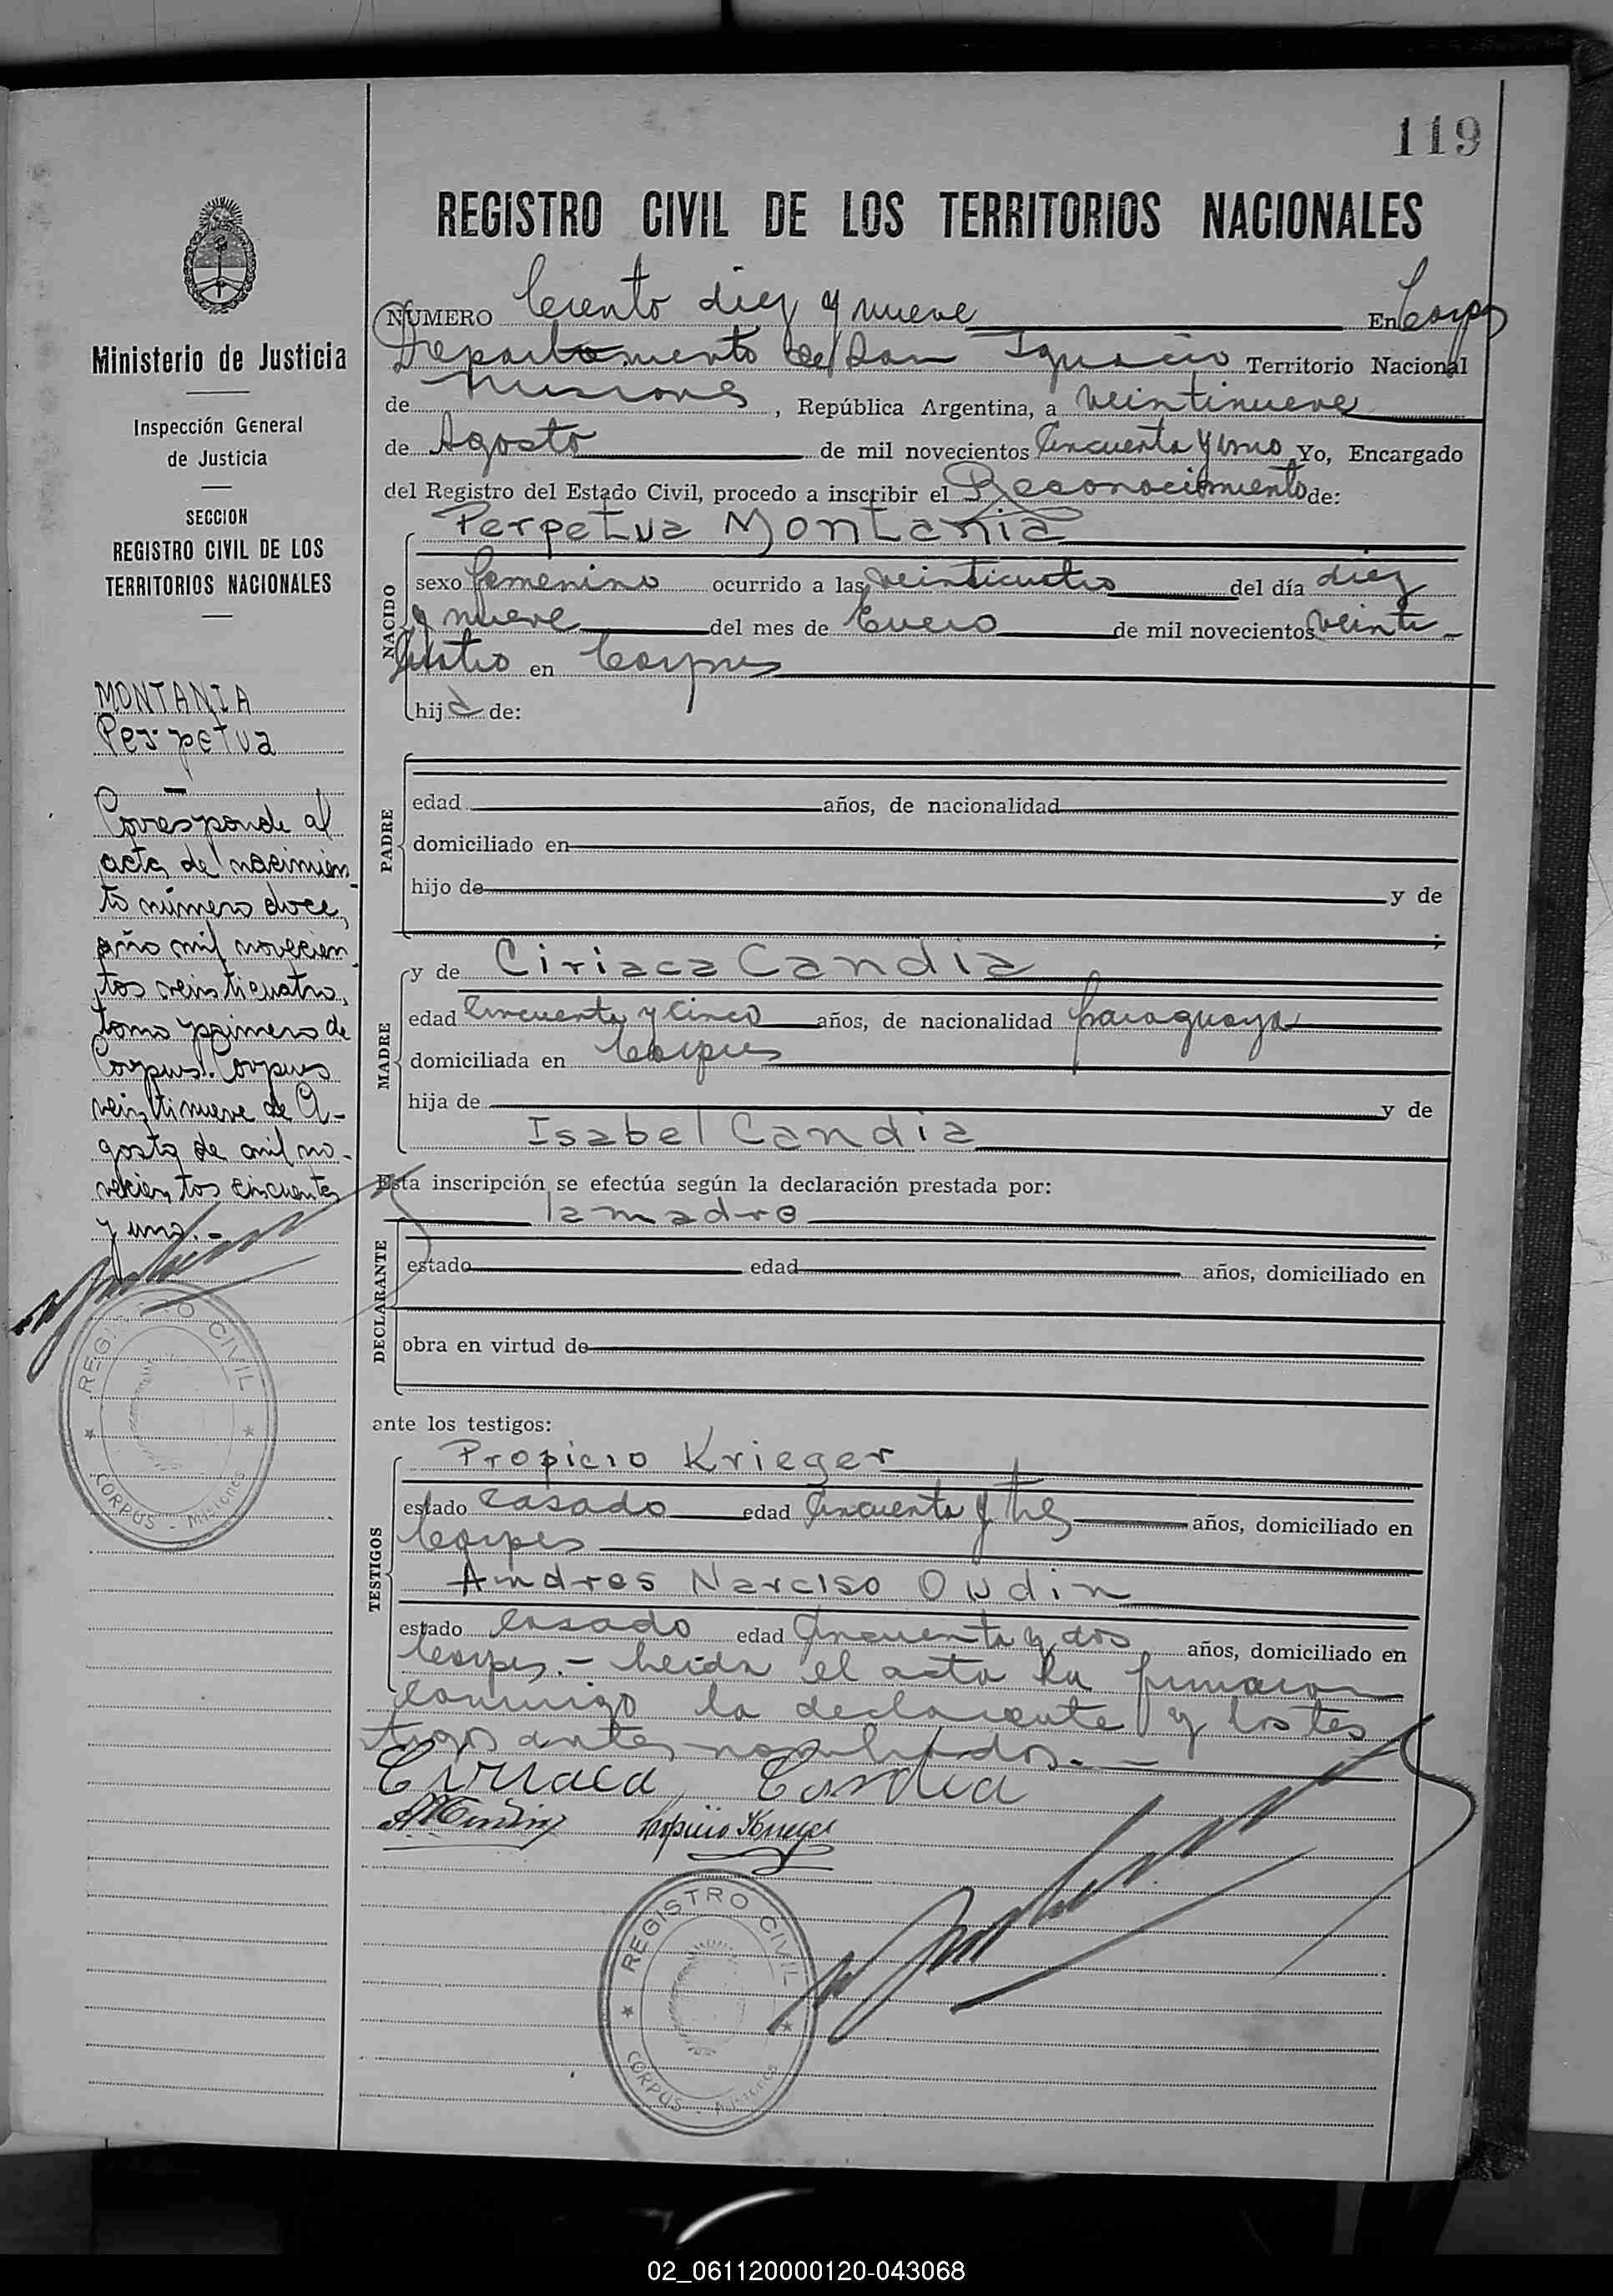 119
REGISTRO CIVIL DE LOS TERRITORIOS NACIONALES
Ministerio de Justicia
Inspección General
de Justicia
SECCION
REGISTRO CIVIL DE LOS
TERRITORIOS NACIONALES
MONTANIA
Perpetua
Corresponde al
acta de nacimien
to número doce,
año mil novecien
tos veinticuatro,
tomo primero de
Corpus. Corpus
veintinueve de A-
gosto de mil no-
vecientos cincuenta
y uno.-
REGISTRO CIVIL
CORPUS - Misiones
NUMERO Ciento diez y nueve En Corpus
Departamento de San Ignacio Territorio Nacional
de Misiones, República Argentina, a veintinueve
de Agosto de mil novecientos cincuenta y uno Yo, Encargado
del Registro del Estado Civil, procedo a inscribir el Reconocimiento de:
NACIDO
Perpetua Montania
sexo femenino ocurrido a las veinticuatro del día diez
y nueve del mes de Enero de mil novecientos veinti-
cuatro en Corpus
hija de:
PADRE
edad años, de nacionalidad
domiciliado en
hijo de y de
;
MADRE
y de Ciriaca Candia
edad cincuenta y cinco años, de nacionalidad paraguaya
domiciliada en Corpus
hija de y de
Isabel Candia
Esta inscripción se efectúa según la declaración prestada por:
la madre
DECLARANTE
estado edad años, domiciliado en
obra en virtud de
ante los testigos:
TESTIGOS
Propicio Krieger
estado casado edad cincuenta y tres años, domiciliado en
Corpus
Andres Narciso Oudin
estado casado edad cincuenta y dos años, domiciliado en
Corpus.- Leida el acta la firmaron
conmigo la declarante y los tes
tigos antes nombrados.-
Ciriaca Candia
Propicio Krieger
REGISTRO CIVIL
CORPUS - Misiones
02_061120000120-043068